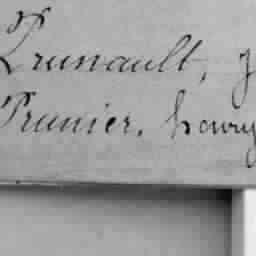 Prunault, J
Prunier, henry